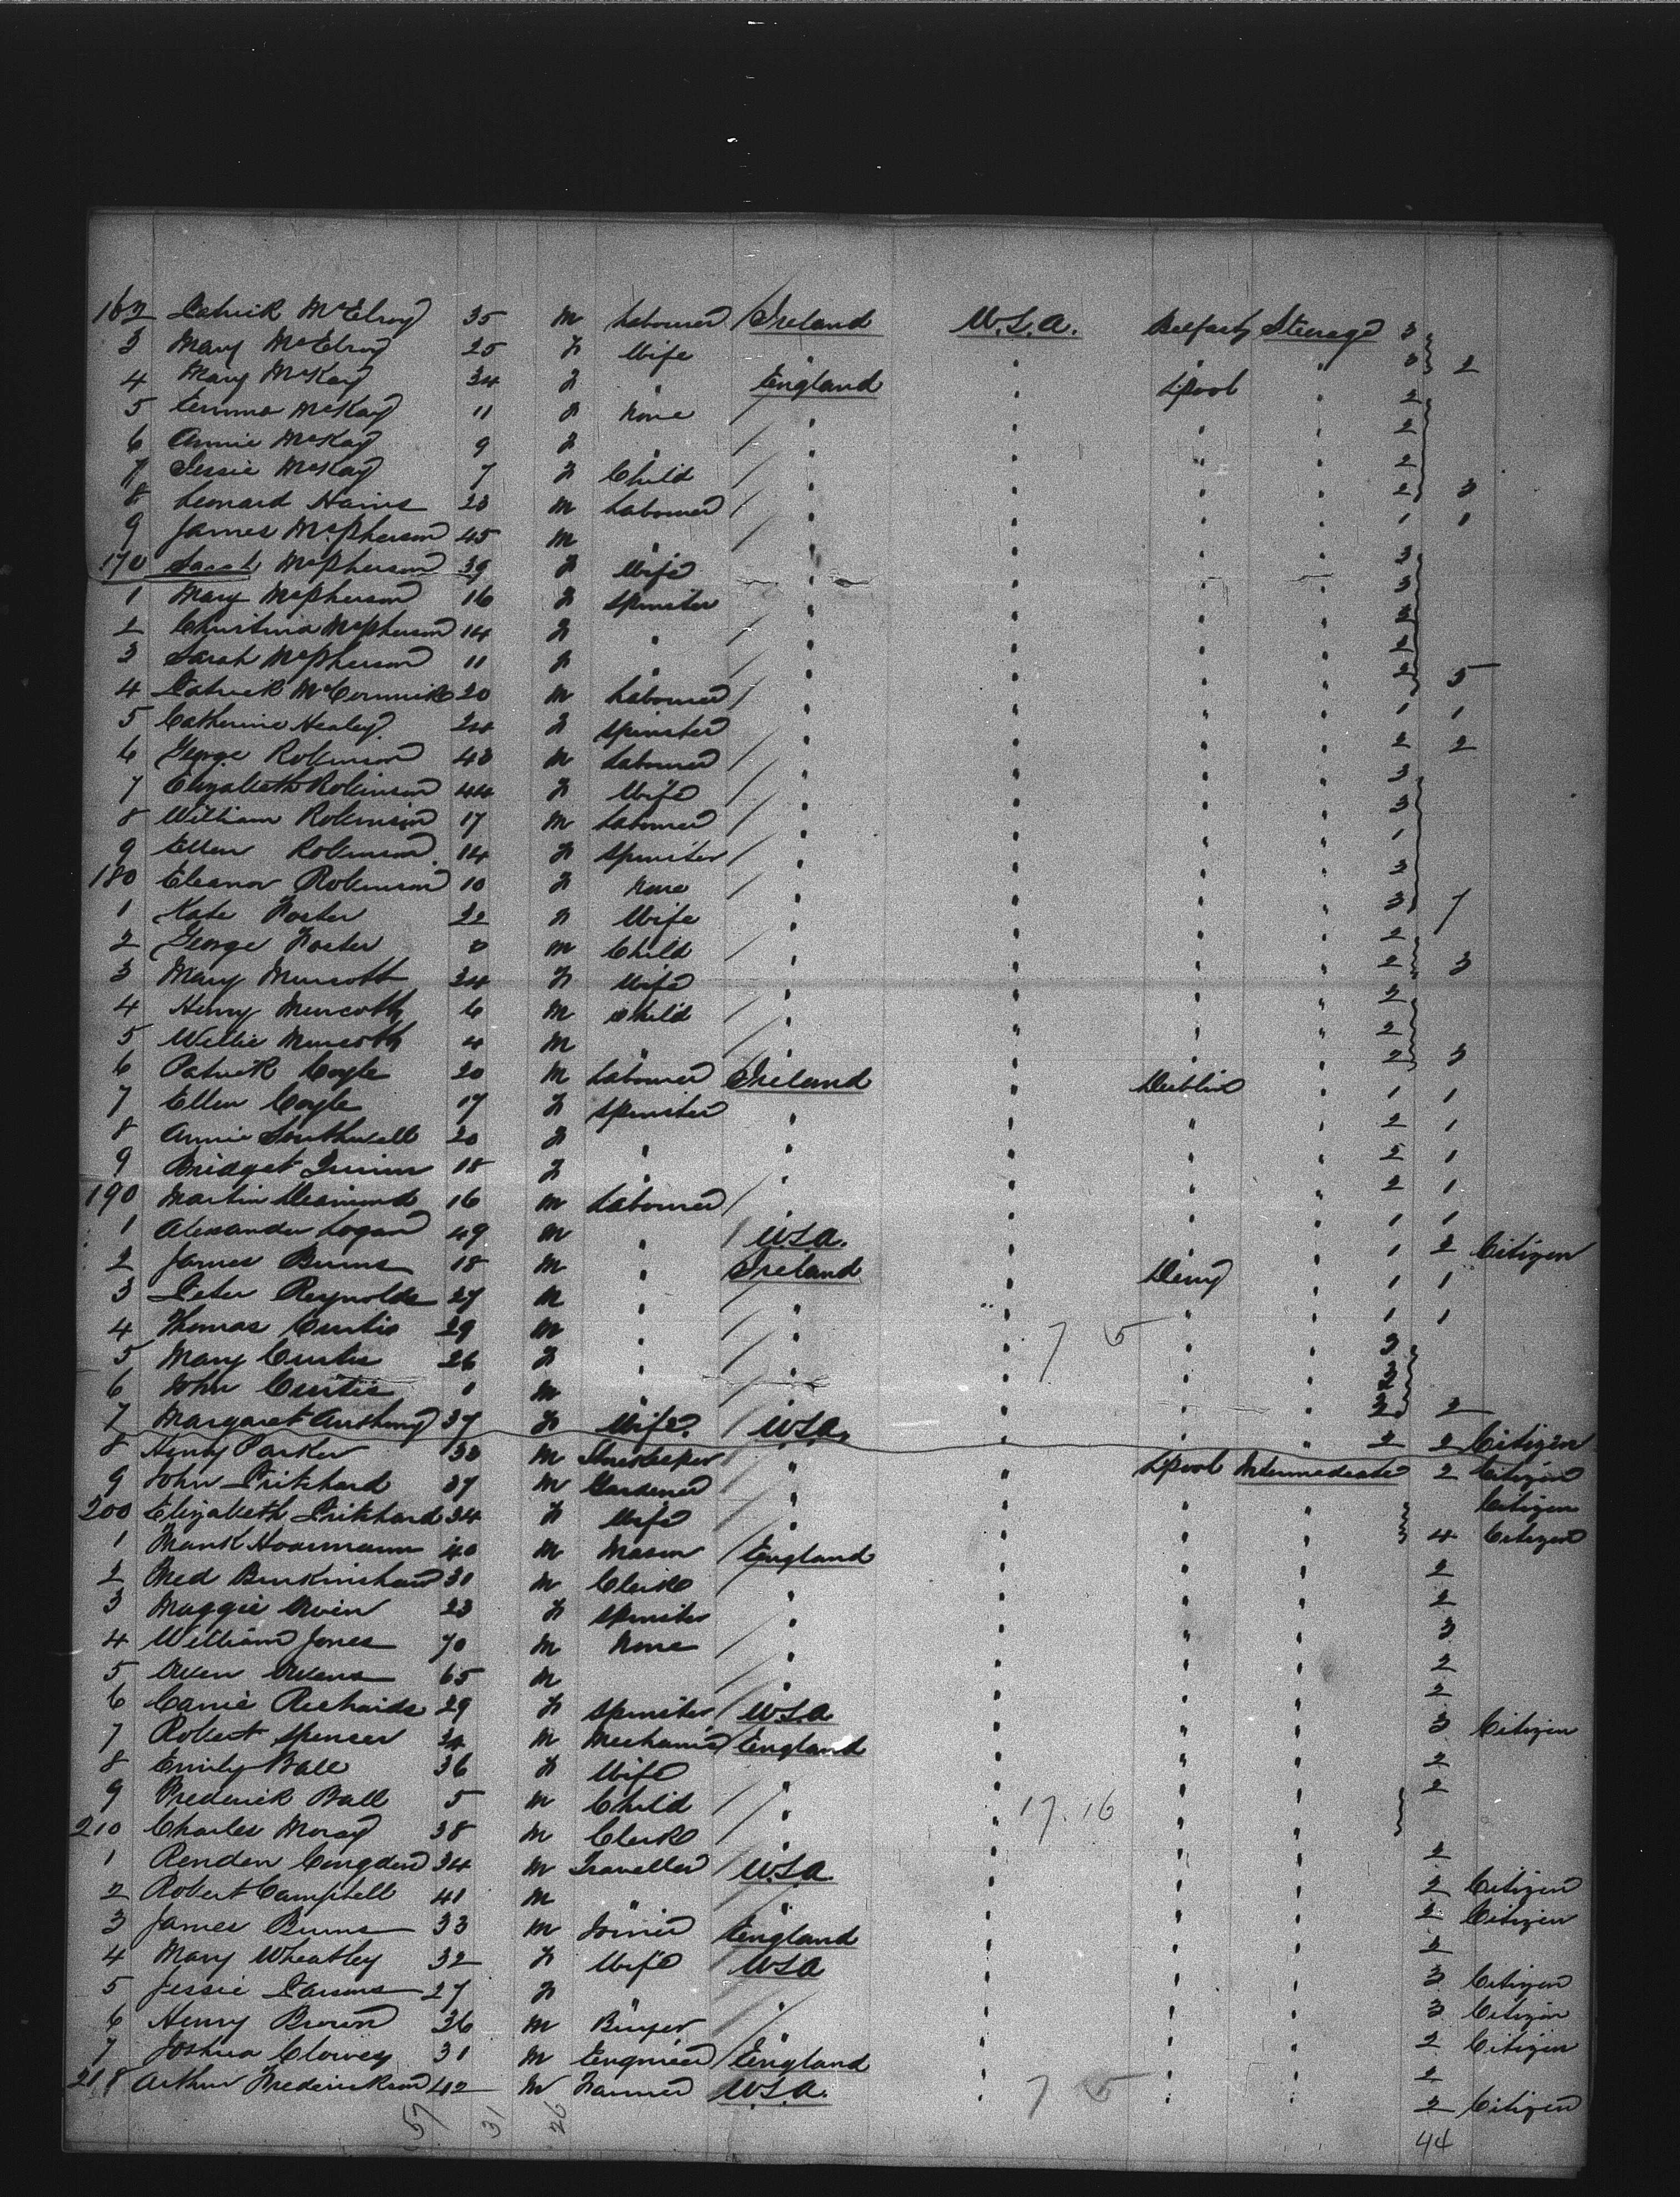 162 Patrick McElroy 35 M Labourer Ireland U.S.A. Belfast Steerage 3
3 Mary McElroy 25 F Wife " " " " 3 2
4 Mary McKay 34 F " England " L'pool " 2
5 Emma McKay 11 F None " " " " 2
6 Annie McKay 9 F " " " " " 2
7 Jessie McKay 7 F Child " " " " 2 3
8 Leonard Haines 20 M Labourer " " " " 1 1
9 James McPherson 45 M " " " " " 3
170 Sarah McPherson 39 F Wife " " " " 3
1 Mary McPherson 16 F Spinster " " " " 2
2 Christina McPherson 14 F " " " " " 2
3 Sarah McPherson 11 F " " " " " 2 5
4 Patrick McCormick 20 M Labourer " " " " 1 1
5 Catherine Healey 24 F Spinster " " " " 2 2
6 George Robinson 43 M Labourer " " " " 3
7 Elizabeth Robinson 44 F Wife " " " " 3
8 William Robinson 17 M Labourer " " " " 1
9 Ellen Robinson 14 F Spinster " " " " 2
180 Eleanor Robinson 10 F None " " " " 3 7
1 Kate Foster 22 F Wife " " " " 2
2 George Foster 0 M Child " " " " 2 3
3 Mary Murcott 34 F Wife " " " " 2
4 Henry Murcott 6 M Child " " " " 2
5 Willie Murcott 4 M " " " " " 2 3
6 Patrick Coyle 20 M Labourer Ireland " Dublin " 1 1
7 Ellen Coyle 17 F Spinster " " " " 2 1
8 Annie Southwell 20 F " " " " " 2 1
9 Bridget Quinn 18 F " " " " " 2 1
190 Martin 16 M Labourer " " " " 1 1
1 Alexander Logan 49 M " U.S.A. " " " 1 2 Citizen
2 James Burns 18 M " Ireland " Derry " 1 1
3 Peter Reynolds 27 M " " " " " 1 1
4 Thomas Curtis 29 M " " " " " 3
7 5
5 Mary Curtis 26 F " " " " " 3
6 John Curtis 1 M " " " " " 2 2
7 Margaret Anthony 37 F Wife U.S.A. " " " 2 2 Citizen
8 Henry Parker 33 M Storekeeper " " L'pool Intermediate 2 Citizen
9 John Pritchard 37 M Gardener " " " " Citizen
200 Elizabeth Pritchard 34 F Wife " " " " 4 Citizen
1 Frank 40 M Mason England " " " 2
2 Fred Burkinshaw 31 M Clerk " " " " 2
3 Maggie 23 F Spinster " " " " 3
4 William Jones 70 M None " " " " 2
5 Owen Owens 65 M " " " " 2
6 Carrie Richards 29 F Spinster U.S.A. " " " 3 Citizen
7 Robert Spencer 24 M Mechanic England " " " 2
8 Emily Ball 36 F Wife " " " " 2
9 Frederick Ball 5 M Child " " " "
17.16
210 Charles Moray 38 M Clerk " " " " 2
1 Renden Congdon 34 M Traveller U.S.A. " " " 2 Citizen
2 Robert Campbell 41 M " " " " " 2 Citizen
3 James Burns 33 M Joiner England " " " 2
4 Mary Wheatley 32 F Wife U.S.A " " " 3 Citizen
5 Jessie Parsons 27 F " " " " " 3 Citizen
6 Henry Brown 36 M Buyer " " " " 2 Citizen
7 Joshua Clowes 31 M Engineer England " " " 2
218 Arthur Frederickson 42 M Farmer U.S.A. " " " 2 Citizen
7 5
57 31 26 44